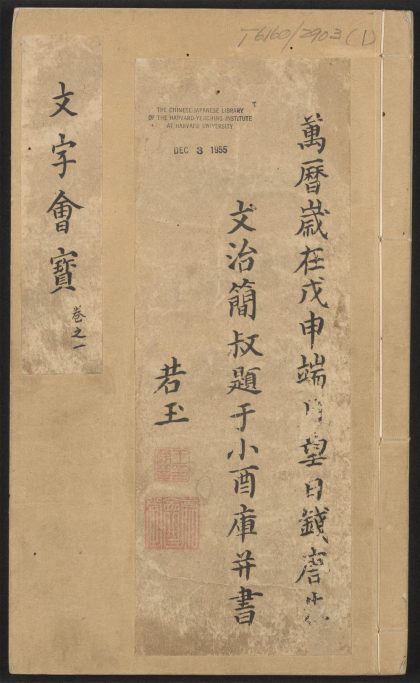 T6160/2903(1)
THE CHINESE-JAPANESE LIBRARY
OF THE HARVARD-YENCHING INSTITUTE
AT HARVARD UNIVERSITY
DEC 3 1955
萬曆歲在戊申端月望日錢唐
文治簡叔題于小酉庫并書
若玉
文字會寶
卷之一